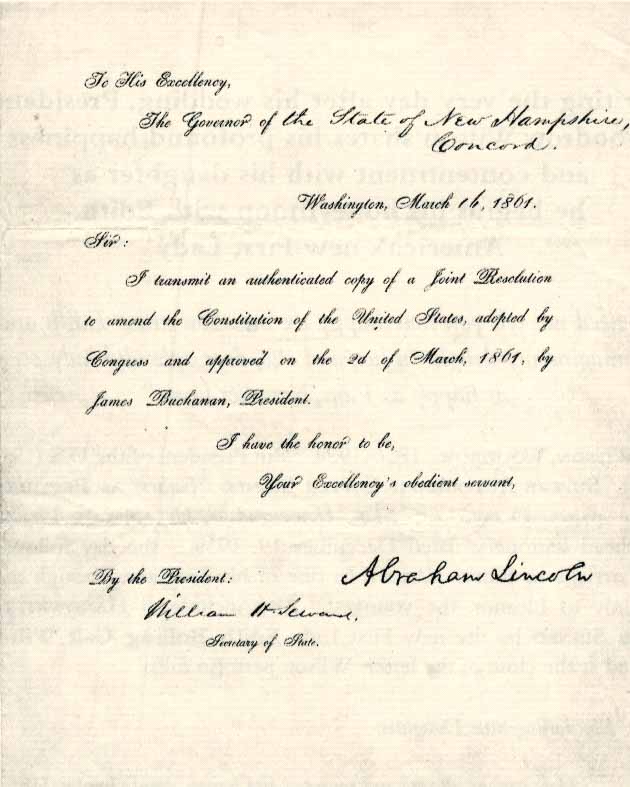 To His Excellency,
The Governor of the State of New Hampshire,
Concord.
Washington, March 16, 1861.
Sir:
I transmit an authenticated copy of a Joint Resolution
to amend the Constitution of the United States, adopted by
Congress and approved on the 2d of March, 1861, by
James Buchanan, President.
I have the honor to be,
Your Excellency's obedient servant,
Abraham Lincoln
By the President:
William H. Seward.
Secretary of State.